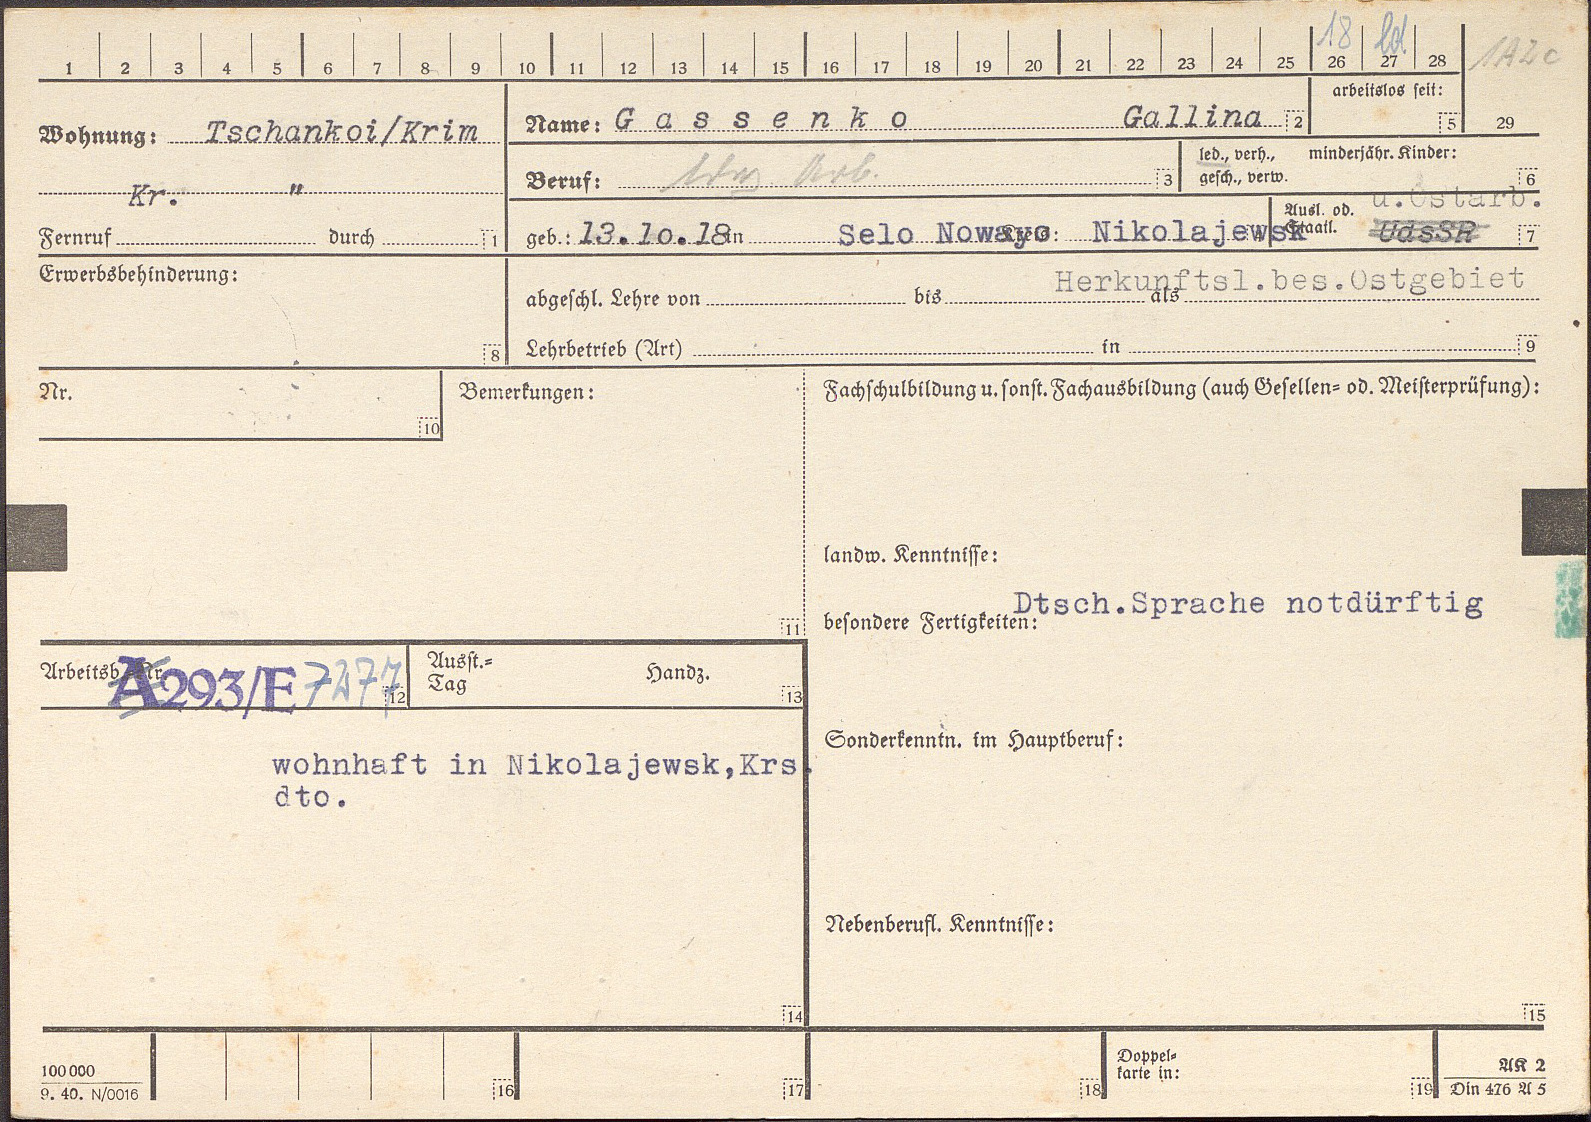 18 ld
1A2c
1 2 3 4 5 6 7 8 9 10 11 12 13 14 15 16 17 18 19 20 21 22 23 24 25 26 27 28
29
Wohnung: Tschankoi/Krim
Kr. "
Fernruf durch 1
Name: G a s s e n k o Gallina 2
arbeitslos seit: 5
Beruf: Arb. 3
led., verh., minderjähr. Kinder:
gesch., verw. 6
geb.: 13.10.18 in Selo Nowayo Kreis: Nikolajewsk
Ausl. od. u.Ostarb.
Staatl. UdsSR 7
Erwerbsbehinderung: 8
Herkunftsl.bes.Ostgebiet
abgeschl. Lehre von bis als
Lehrbetrieb (Art) in 9
Nr. 10
Bemerkungen: 11
Fachschulbildung u. sonst. Fachausbildung (auch Gesellen- od. Meisterprüfung):
landw. Kenntnisse:
besondere Fertigkeiten: Dtsch.Sprache notdürftig
Arbeitsb. Nr. A293/E 7277 12
Ausst.-
Tag Handz. 13
Sonderkenntn. im Hauptberuf:
wohnhaft in Nikolajewsk,Krs.
dto.
14
Nebenberufl. Kenntnisse:
15
100 000
9. 40. N/0016
16 17 18
Doppel-
karte in: 19
AK 2
Din 476 A 5